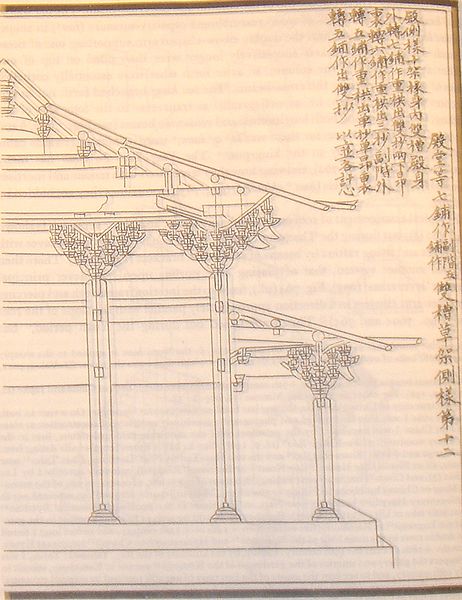 殿堂等七鋪作副階五鋪作雙槽草架側樣第十二
殿側樣十架椽身內雙槽殿身
外轉七鋪作重栱出雙抄兩下昂
裏轉六鋪作重栱出三抄副階外
轉五鋪作重栱出單抄單昂裏
轉五鋪作出雙抄 以各計心